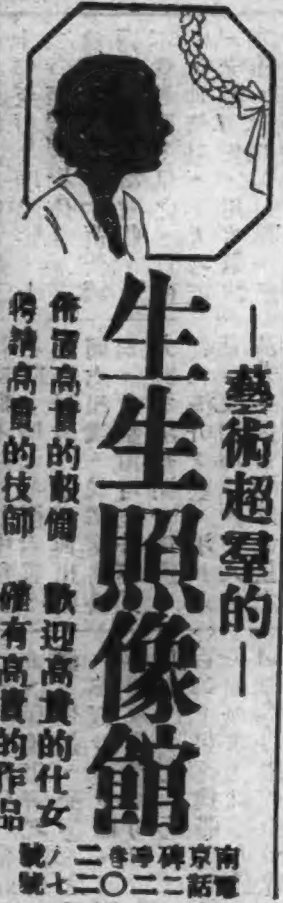 藝術超羣的
生生照像館
佈置高貴的設備 歡迎高貴的仕女
聘請高貴的技師 確有高貴的作品
南京碑亭巷二八號
電話二二〇二七號